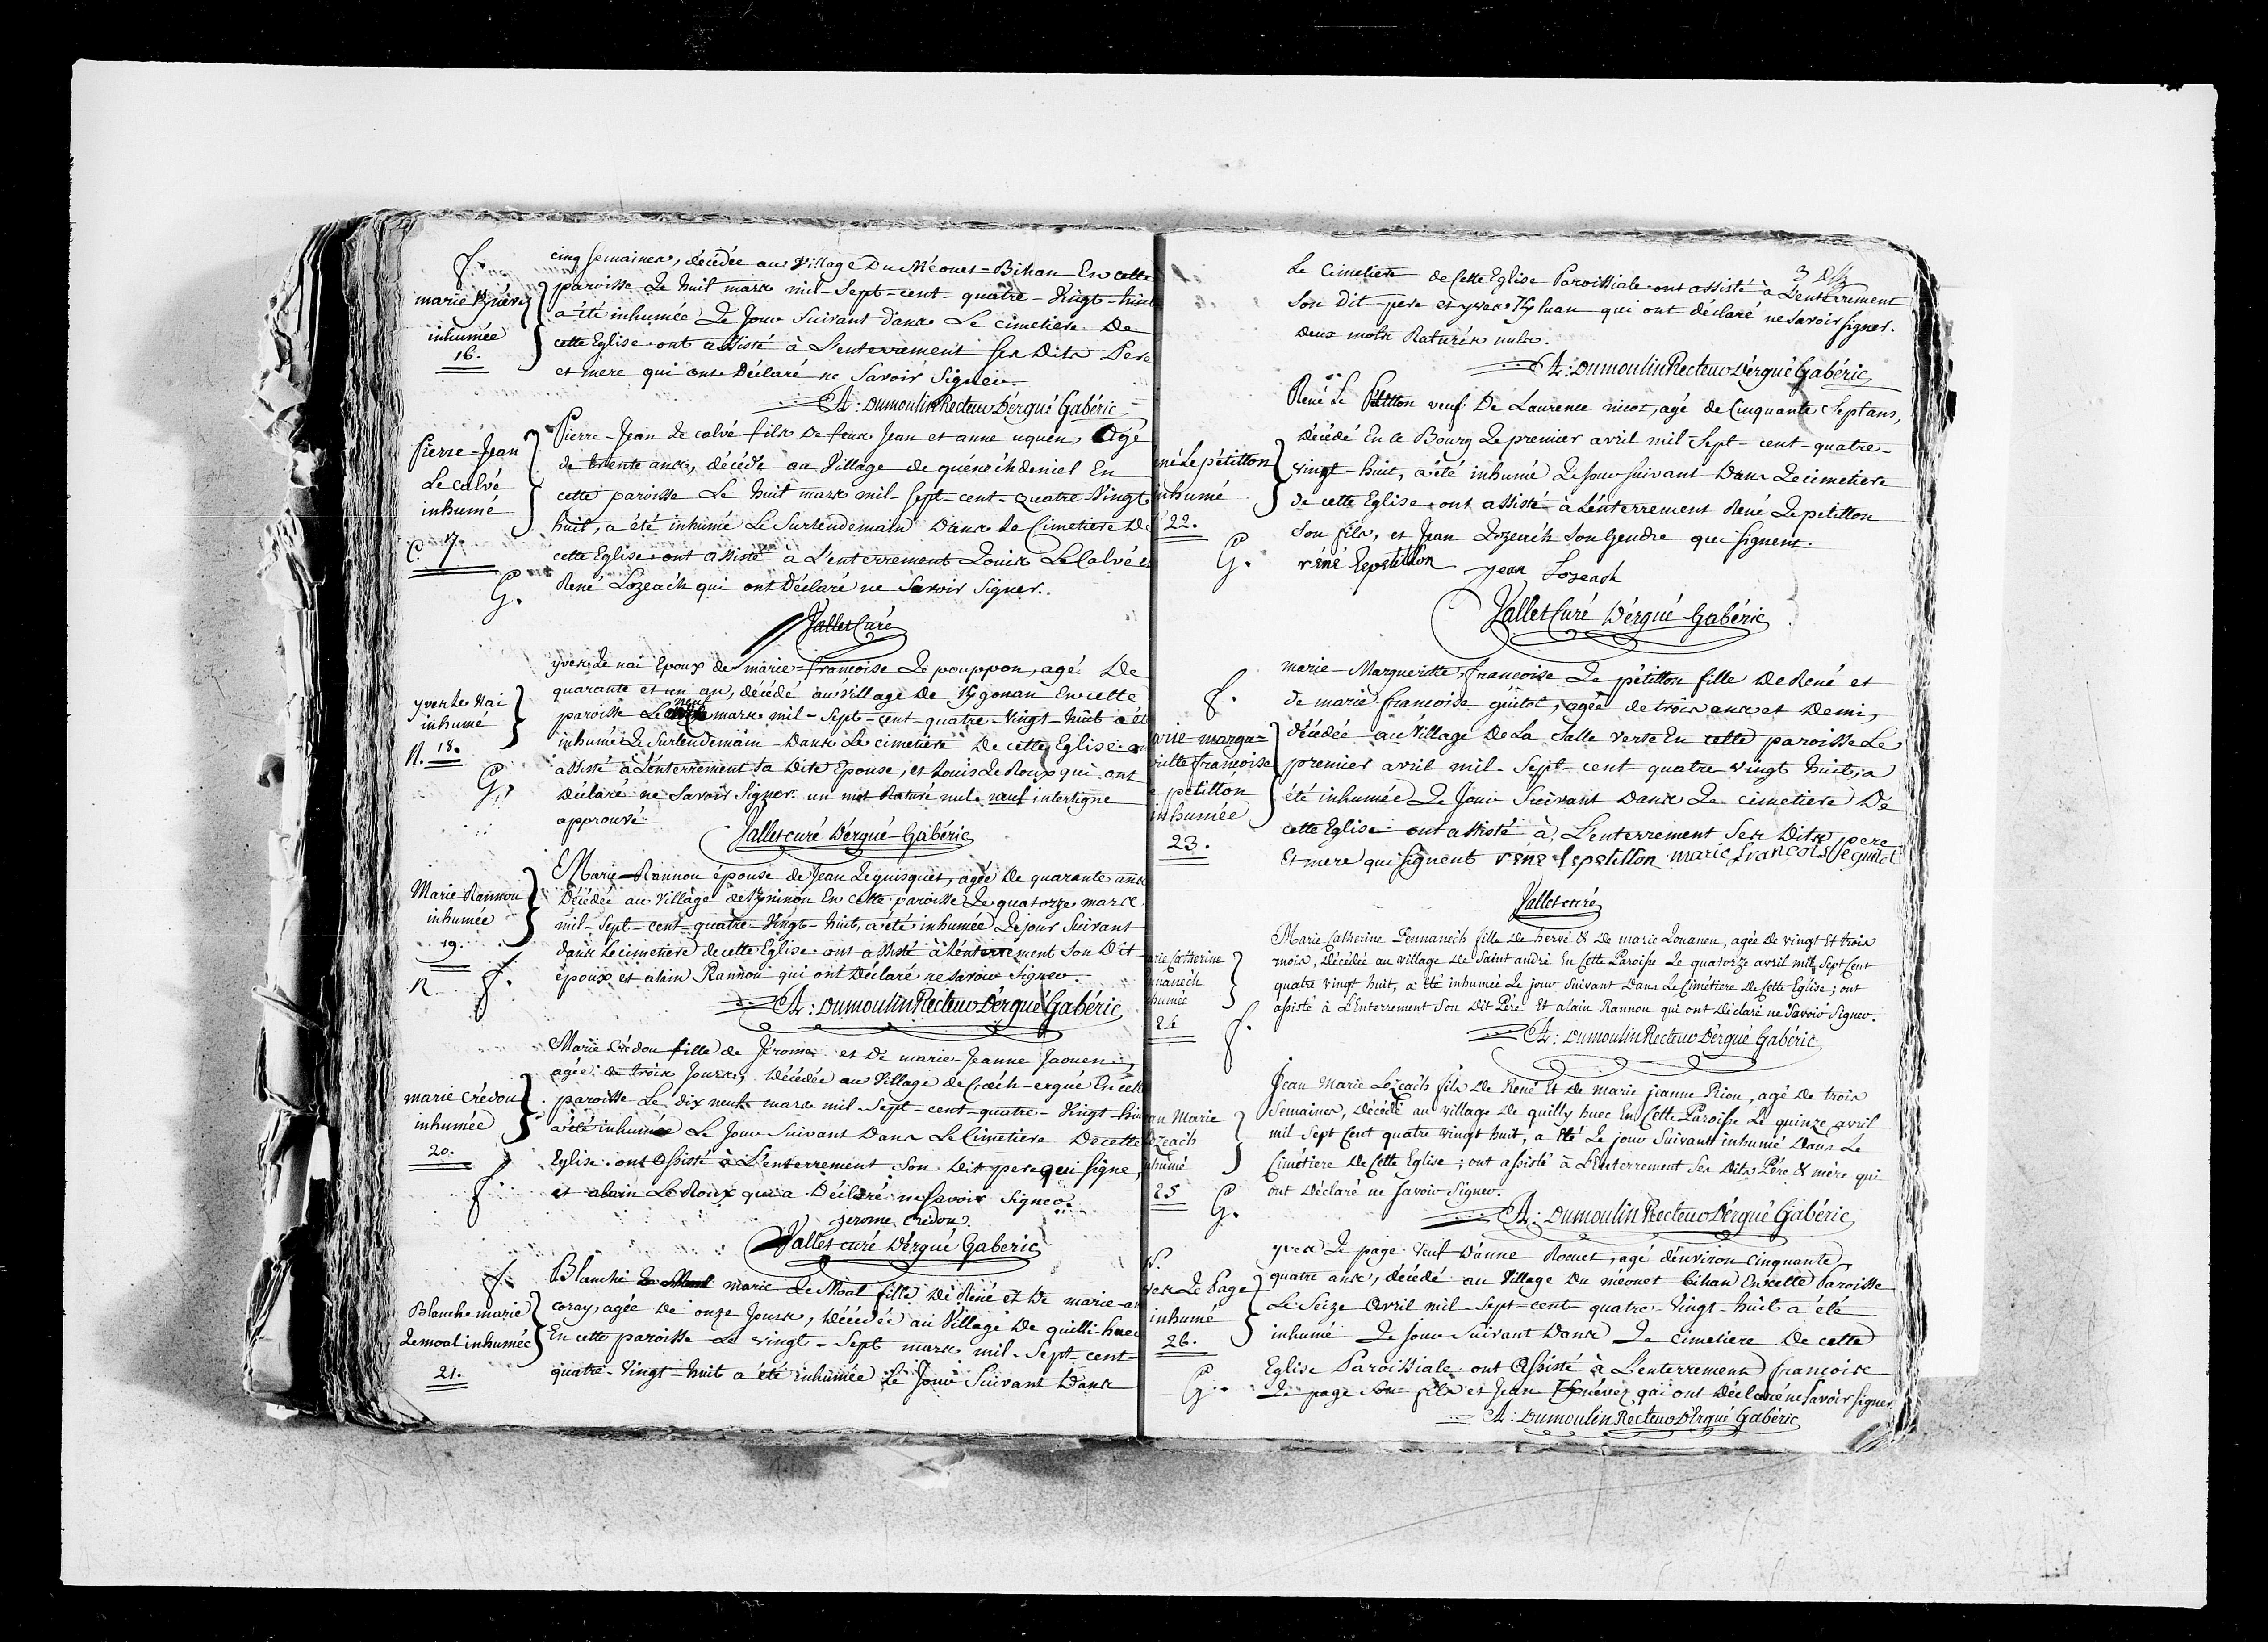 f.
marie
inhumée
16.
cinq Semaines, décédée au Village Du Méouet-Bihan En cette
paroisse Le huit mars mil-Sept-cent-quatre-Vingt-huit
a été inhumée Le Jour Suivant dans Le cimetiere De
cette Eglise. ont assisté à L'enterrement Ses Dits Pere
et mere qui ont Déclaré ne Savoir Signer.
A: Dumoulin Recteur Dergué Gabéric
Pierre-Jean
Le calvé
inhumé
17.
C.
G.
Pierre-Jean Le calvé fils De feux Jean et anne uguen, Agé
de trente ans, décédé au Village de quénechdeniel En
cette paroisse Le huit mars mil Sept-cent-quatre Vingt
huit, a été inhumé Le Surlendemain Dans Le Cimetiere De
cette Eglise. ont assisté à L'enterrement Louis Le Calvé et
René Lozeach qui ont Déclaré ne Savoir Signer.
Jallet Curé
yves Le Nai
inhumé
18.
N.
G.
yves Le nai Epoux de marie-françoise Le pouppon, agé De
quarante et un an, décédé au Village de Kgonan En cette
neuf
paroisse Le mars mil-Sept-cent-quatre-Vingt-huit a été
inhumé Le Surlendemain Dans Le cimetiere De cette Eglise.
assisté à L'enterrement Sa Dite Epouse, et Louis Le Roux qui ont
Déclaré ne Savoir Signer. un mot Raturé nul. neuf interligne
approuvé.
Jallet curé D'ergué-Gabéric
Marie Rannou
inhumée
19.
R.
f.
Marie Rannou épouse de Jean Leguisquet, agée De quarante ans
Décédée au Village de Kninon En cette paroisse Le quatorze mars
mil-Sept-cent-quatre-Vingt-huit, a été inhumée Le jour Suivant
dans Le cimetiere de cette Eglise. ont assisté à L'enterrement Son Dit
époux et alain Rannou qui ont Déclaré ne Savoir Signer.
A: Dumoulin Recteur Dergué Gabéric
marie Crédou
inhumée
20.
f.
Marie Crédou fille de Jérome et De marie-Jeanne Jaouen,
agée de trois Jours, Décédée au Village de Creéch-ergué En cette
paroisse Le dix neuf mars mil-Sept-cent-quatre-Vingt-huit
a été inhumée Le Jour Suivant Dans Le Cimetiere De cette
Eglise. ont Assisté à L'enterrement Son Dit pere qui Signe,
et alain Le Roux qui a Déclaré ne Savoir Signer.
jerome credou
Jallet curé D'ergué Gaberic
f.
Blanche marie
Le moal inhumée
21.
Blanche marie Le Moal fille De René et De marie-
coray, agée De onze Jours, Décédée au Village De quilli-huec
En cette paroisse Le vingt-Sept mars mil-Sept-cent-
quatre-Vingt-huit a été inhumée Le Jour Suivant Dans
Le Cimetiere de Cette Eglise Paroissiale. ont assisté à L'enterrement
Son Dit pere et yves Kluan qui ont déclaré ne Savoir Signer.
Deux mots Raturés nuls.
A: Dumoulin Recteur Dergué Gabéric
né Le pétillon
inhumé
22.
G.
René Le Pétillon veuf De Laurence nicot, agé de Cinquante Sept ans,
Décédé En Ce Bourg Le premier avril mil-Sept-cent-quatre-
vingt-huit, a été inhumé Le Jour Suivant Dans Le cimetiere
de cette Eglise. ont assisté à L'enterrement René Le petillon
Son fils, et Jean Lozeach Son Gendre qui Signent.
réné lepetillon jean Lozeach
Jallet Curé D'ergué-Gabéric
f.
arie margue=
ritte françoise
pétillon
inhumée
23.
marie-Margueritte françoise Le pétillon fille De René et
de marie françoise guitot, agée de trois ans et Demi,
décédée au Village De La Salle verte En cette paroisse Le
premier avril mil-Sept-cent-quatre-vingt-huit, a
été inhumée Le Jour Suivant Dans Le cimetiere De
cette Eglise. ont assisté à L'enterrement Ses Dits pere
Et mere qui Signent réné lepetillon marie francois
Jallet curé
rie Catherine
nnanéch
humée
f.
Marie Catherine Pennanéch fille De hervé & De marie Louanen, agée De vingt Et trois
mois, Décédée au village De Saint andré En Cette Paroisse Le quatorze avril mil Sept Cent
quatre vingt huit, a été inhumée Le jour Suivant Dans Le Cimétiere De Cette Eglise; ont
assisté à L'Enterrement Son Dit Péré Et alain Rannou qui ont Déclaré ne Savoir Signer.
A: Dumoulin Recteur Dergué Gabéric
an Marie
zeach
inhumé
25
G.
Jean Marie Lozeach fils De René Et De marie jeanne Riou, agé De trois
Semaines, Décédé au village De quilly huec En Cette Paroisse Le quinze avril
mil Sept Cent quatre vingt huit, a Eté Le jour Suivant inhumé Dans Le
Cimétiere De Cette Eglise; ont assisté à L'Enterrement Ses Dits Pére & mére qui
ont Déclaré ne Savoir Signer.
A: Dumoulin Recteur Dergué Gabéric
ves Le Page
inhumé
26.
G.
yves Le page Veuf D'anne Rocuet, agé d'environ Cinquante
quatre ans, décédé au Village Du méouet bihan En cette Paroisse
Le Seize Avril mil-Sept-cent-quatre-Vingt-huit a été
inhumé Le Jour Suivant Dans Le cimetiere De cette
Eglise Paroissiale. ont Assisté à L'enterrement françois
Le page Son fils et Jean qui ont Déclaré ne Savoir Signer
A: Dumoulin Recteur D'Ergué Gabéric